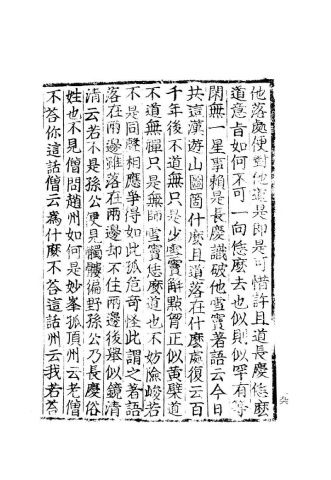 他落處便對他道是即是可惜許且道長慶恁麼
道意旨如何不可一向恁麼去也似則似罕有等
閑無一星事賴是長慶識破他雪竇著語云今日
共這漢遊山圖箇什麼且道落在什麼處復云百
千年後不道無只是少雪竇觧點胷正似黃檗道
不道無禪只是無師雪竇恁麼道也不妨險峻若
不是同聲相應爭得如此孤危奇怪此謂之著語
落在兩邊雖落在兩邊却不住兩邊後舉似鏡清
清云若不是孫公便見髑髏徧野孫公乃長慶俗
姓也不見僧問趙州如何是妙峯孤頂州云老僧
不答你這話僧云爲什麼不答這話州云我若答